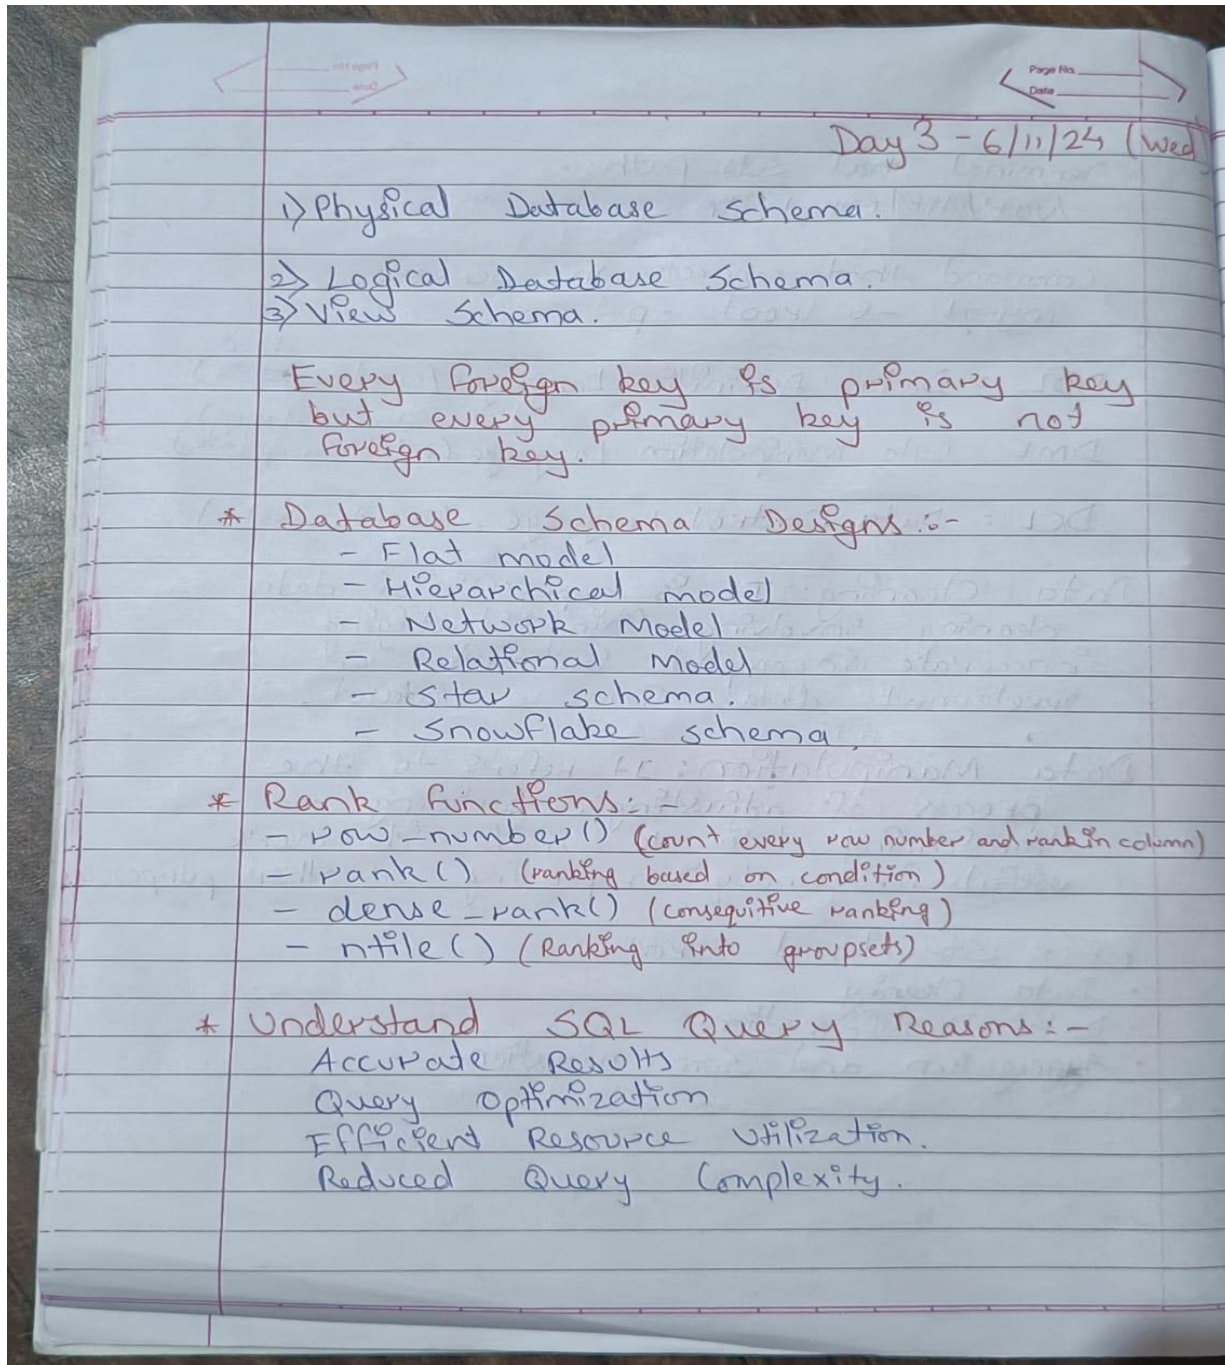 Page No.
Date
Day 3 - 6/11/24 (Wed)
1) Physical Database Schema.
2) Logical Database Schema.
3) View Schema.
Every foreign key is primary key
but every primary key is not
foreign key.
* Database Schema Designs :-
- Flat model
- Hierarchical model
- Network Model
- Relational Model
- Star schema.
- Snowflake schema.
* Rank functions: -
- row_number() (count every row number and rank in column)
- rank() (ranking based on condition)
- dense_rank() (consequitive ranking)
- ntile() (Ranking into groupsets)
* Understand SQL Query Reasons: -
Accurate Results
Query Optimization
Efficient Resource Utilization.
Reduced Query Complexity.